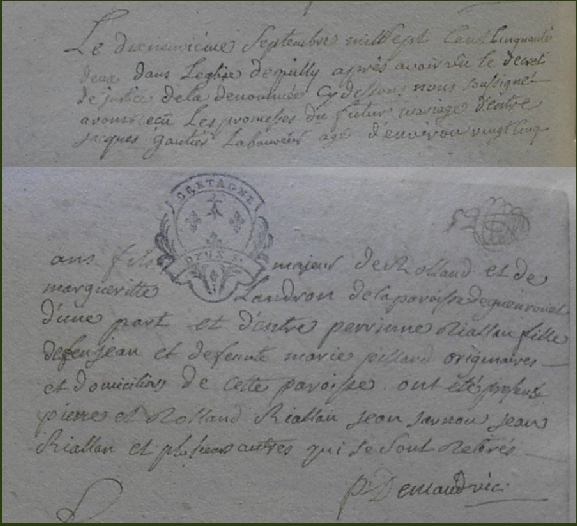 Le dixneuvieme Septembre mil Sept Cent Cinquante
deux dans Leglise de quilly après avoir vu le decret
de justice de la denommée Cy dessous nous soussignet
avons recu Les promesses du futur mariage d'entre
jacques gautier Laboureur agé d'environ vingt cinq
BRETAGNE
DEUX S.
ans fils majeur de Rolland et de
margueritte Landron de la paroisse de guenrouet
d'une part et d'entre perrinne Riallan fille
de feu jean et defunte marie pillard originaires
et domiciliés de cete paroisse. ont été presents
pierre et Rolland Riallan jean jean
Riallan et plusieurs autres qui se sont Retirés
p Demaudvic: